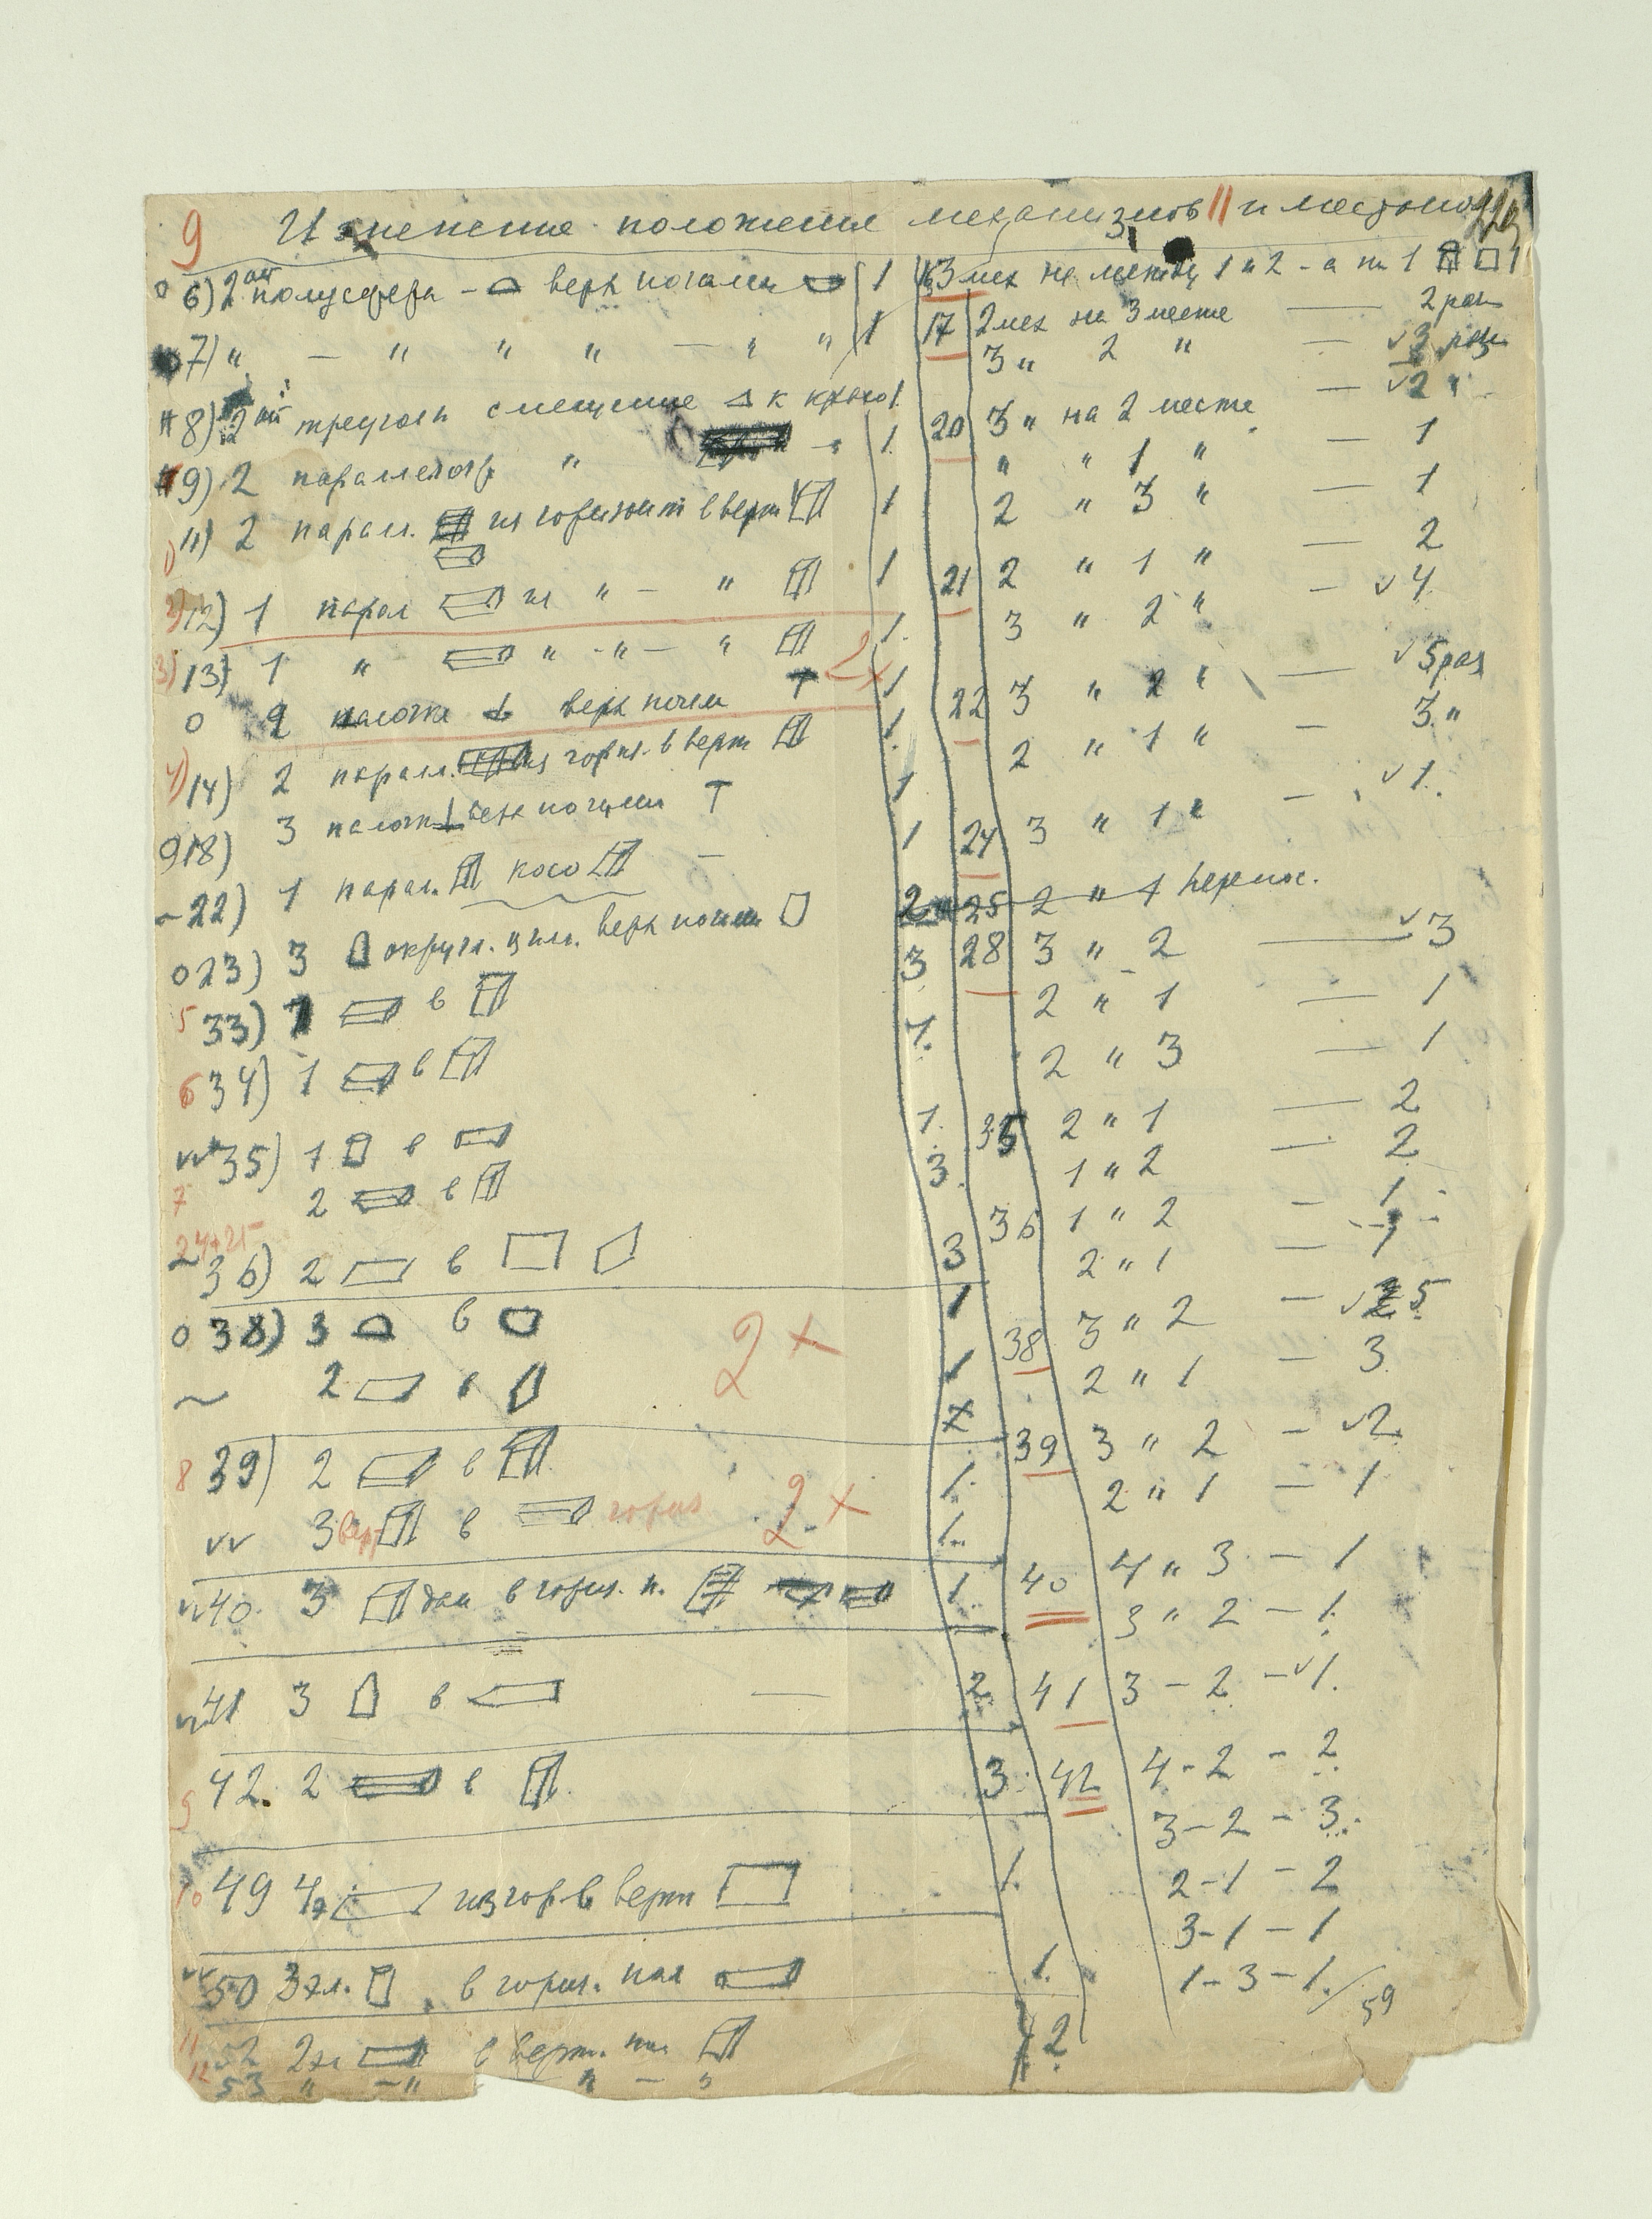 9 Изменение положение механизмов II и
6) 2ой полусфера – верх ногами 1
7) " – " " " – " " 1
8) 2ой треугольн смещение к краю 1.
9) 2 параллелогр " 1.
11) 2 парал. из горизонт в верт 1
2) 12) 1 парал из " – " 1
3) 13) 1 " " - " – " 1. 2х
0 2 палочка верх ногам Т 1
4) 14) 2 парал. из гориз. в верт 1.
18) 3 палочк верх ногами Т 1
22) 1 парал. косо – 1
0 23) 3 округл. цил. верх ногам 2
5 33) 1 в 3
6 34) 1 в 1.
vv 35) 1 в 1.
7 2 в 3.
24+25
36) 2 в 3
0 38) 3 в 1
~ 2 в 2 х 1
8 39) 2 в 1.
vv 3 верт в гориз 2 х 1.
vv 40. 3 в гориз. п. 1.
vv 41 3 в — 2.
9 42. 2 в 3.
10 49 4 из гор в верт 1.
vv 50 3 эл. в гориз. пол 1.
11 52 2эл в верт. пол 12.
12 53 " – " " – "
16 3 мех на месте 1 и 2 - а на 1 1
17 2 мех на 3 месте — 2 раз
3 " 2 " — v 3 раз
20 3 " на 2 месте — v 2 "
" " 1 " — 1
2 " 3 " — 1
21 2 " 1 " — 2
3 " 2 " — v 4.
22 3 " 2 " — v 5 раз
2 " 1 " — 3 "
24 3 " 1 " — v 1.
25 2 " 1
28 3 " 2 — v 3
2 " 1 — 1
2 " 3 — 1
35 2 " 1 — 2
1 " 2 — 2
36 1 " 2 – 1
2 " 1 — 1
38 3 " 2 – v 5
2 " 1 – 3
39 3 " 2 – v 2
2 " 1 – 1
40 4 " 3 – 1
3 " 2 – 1.
41 3 – 2 – v 1.
42 4 - 2 - 2
3 – 2 - 3.
2 - 1 - 2
3 - 1 - 1
1 - 3 - 1. / 59